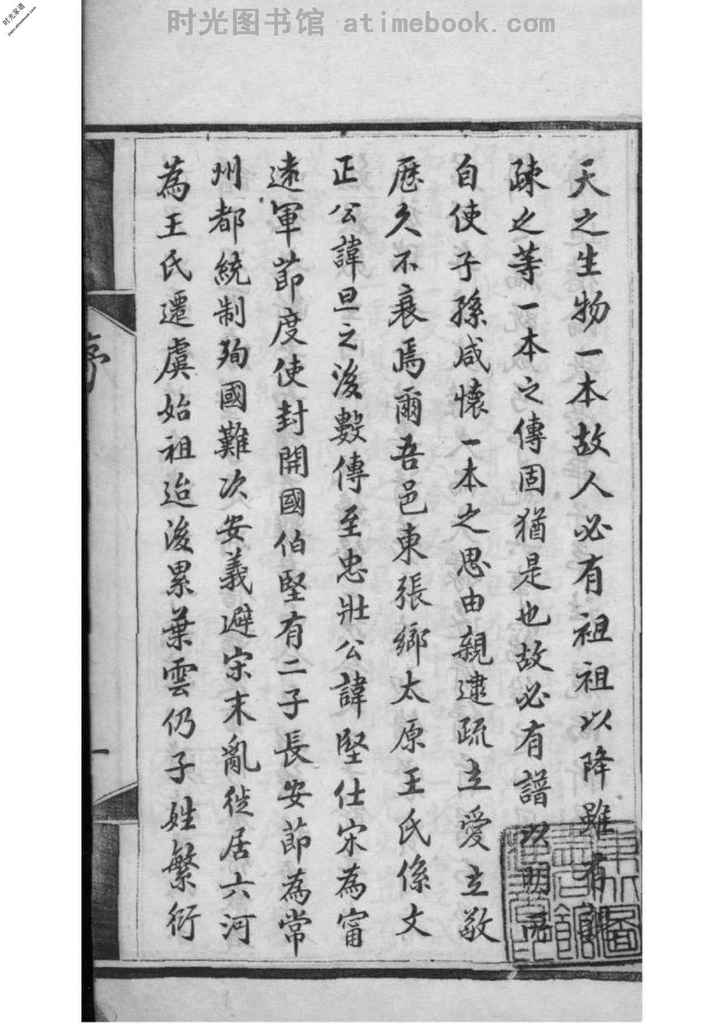 时光图书馆 atimebook.com
时光家谱
www.atimebook.com
天之生物一本故人必有祖祖以降雖有親
疎之等一本之傳固猶是也故必有譜以明所
自使子孫咸懷一本之思由親逮疏立愛立敬
歷久不衰焉爾吾邑東張鄉太原王氏係文
正公諱旦之後數傳至忠壯公諱堅仕宋為甯
遠軍節度使封開國伯堅有二子長安節為常
州都統制殉國難次安義避宋末亂徙居六河
為王氏遷虞始祖迨後累葉雲仍子姓繁衍
序
一